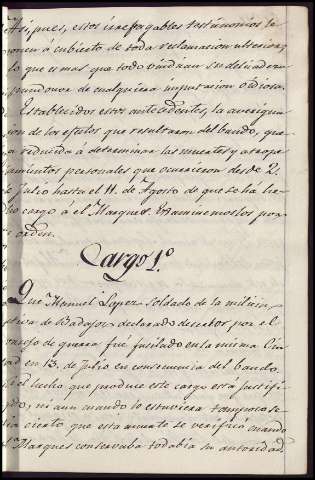 Asi, pues, estos irrefragables testimonios le
ponen á cubierto de toda reclamacion ulterior, y
lo que es mas que todo vindican su delicadeza
pundonor de cualquiera imputacion odiosa.
Establecidos estos antecedentes, la averigua-
ion de los efectos que resultaron del bando, que-
a reducida á determinar las muertes y atrope-
lamientos personales que ocurrieron desde 2.
e Julio hasta el 11. de Agosto de que se ha he-
ho cargo á el Marques. Examinemoslos por
orden.
Cargo 1.º
Que Manuel Lopez soldado de la milicia
ativa de Badajoz declarado desertor por el
onsejo de guerra fué fusilado en la misma Ciu-
ad en 13. de Julio en consecuencia del bando.
i el hecho que produce este cargo está justifi-
ado, ni aun cuando lo estuviera tampoco se-
ria cierto que esta muerte se verificó cuando
l Marques conservaba todabia su autoridad.